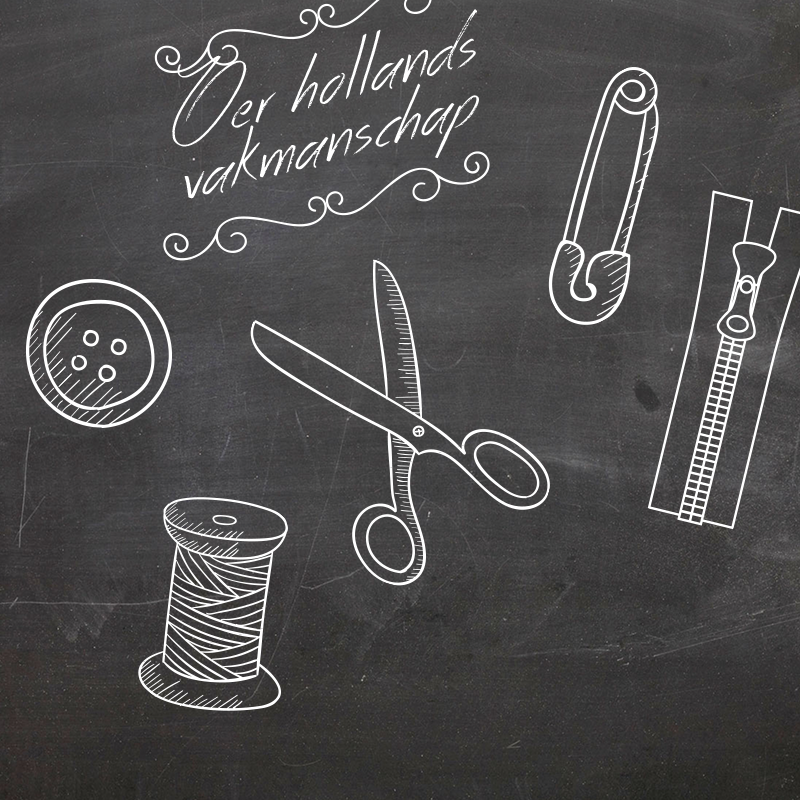 Oer hollands
vakmanschap